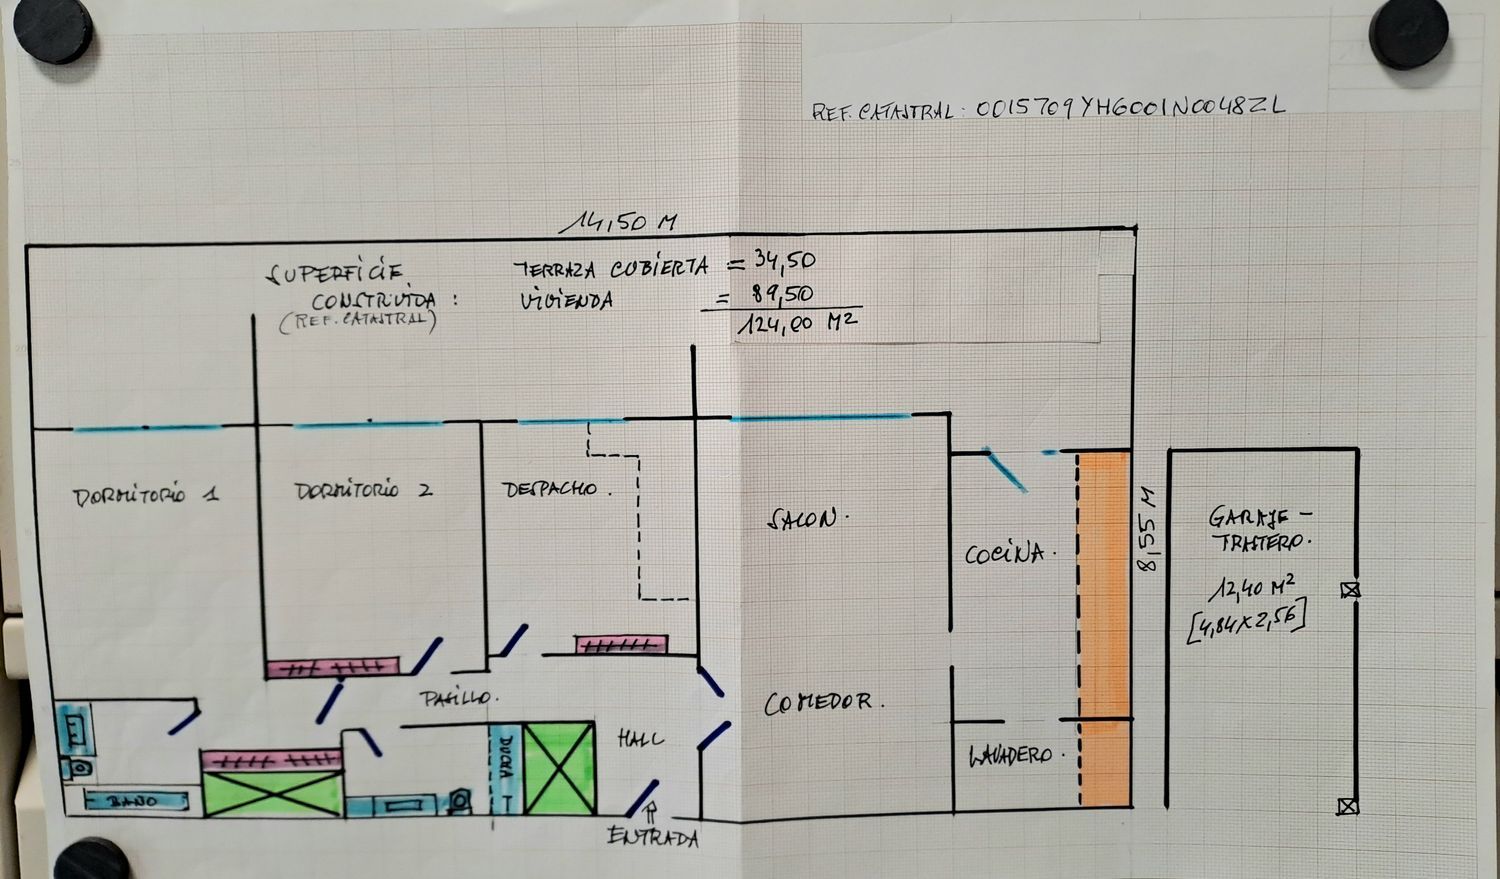 REF. CATASTRAL: 0015709YH6001N0048ZL
14,50 M
SUPERFICIE
CONSTRUIDA:
(REF. CATASTRAL)
TERRAZA CUBIERTA = 34,50
VIVIENDA = 89,50
124,00 M2
DORMITORIO 1
DORMITORIO 2
DESPACHO.
SALON.
COCINA.
8,55 M
GARAJE-
TRASTERO.
12,40 M2
[4,84x2,56]
PASILLO.
HALL
COMEDOR.
LAVADERO.
DUCHA
BAÑO
ENTRADA